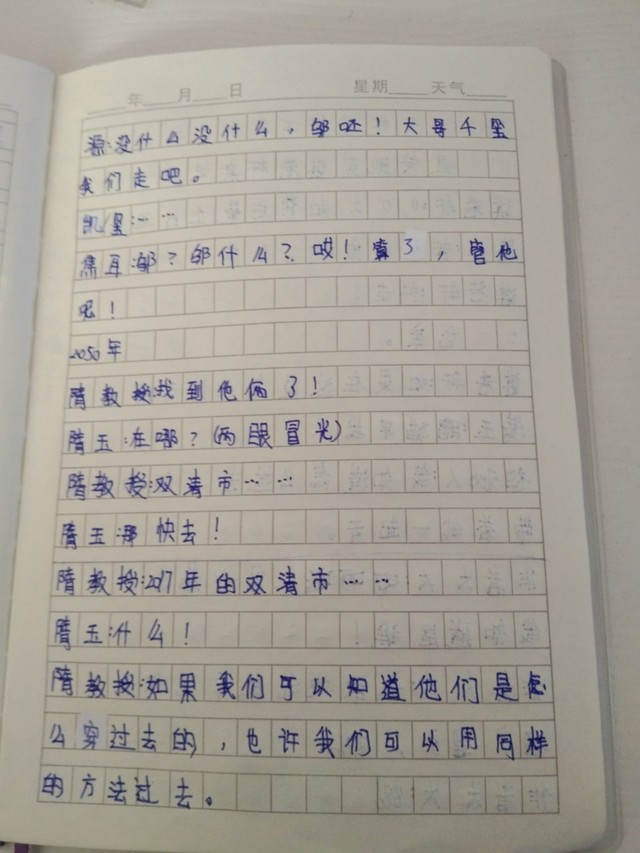 年 月 日 星期 天气
源:没什么没什么,邹呸!大哥千玺
我们走吧。
凯/玺:……
隋耳:邹?邹什么?哎!算了,管他
呢!
2050年
隋教授:找到他俩了!
隋玉:在哪?(两眼冒光)
隋教授:双清市……
隋玉:那快去!
隋教授:2017年的双清市……
隋玉:什么!
隋教授:如果我们可以知道他们是怎
么穿过去的,也许我们可以用同样
的方法过去。